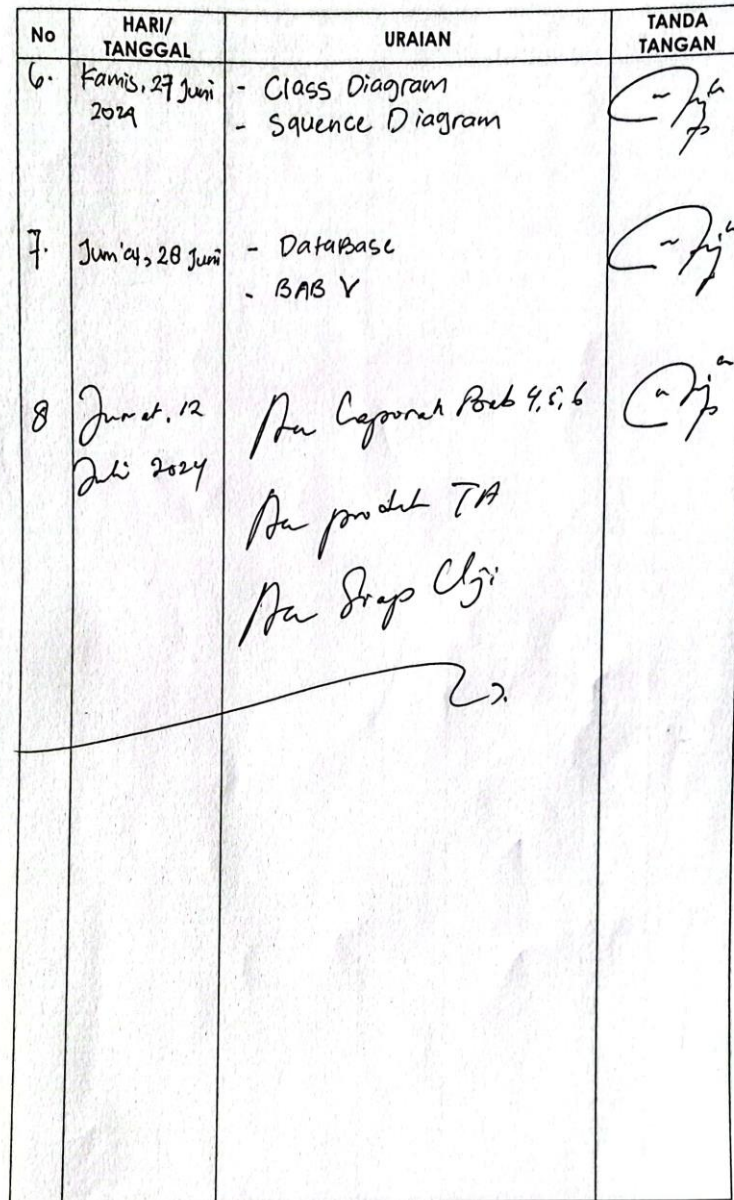 No HARI/ TANGGAL URAIAN TANDA TANGAN
6. Kamis, 27 Juni 2024
- Class Diagram
- Squence Diagram
7. Jum'at, 28 Juni
- Database
- BAB V
8 Jumat, 12
Juli 2024
Acc Laporan Bab 4, 5, 6
Acc produk TA
Acc Siap Uji